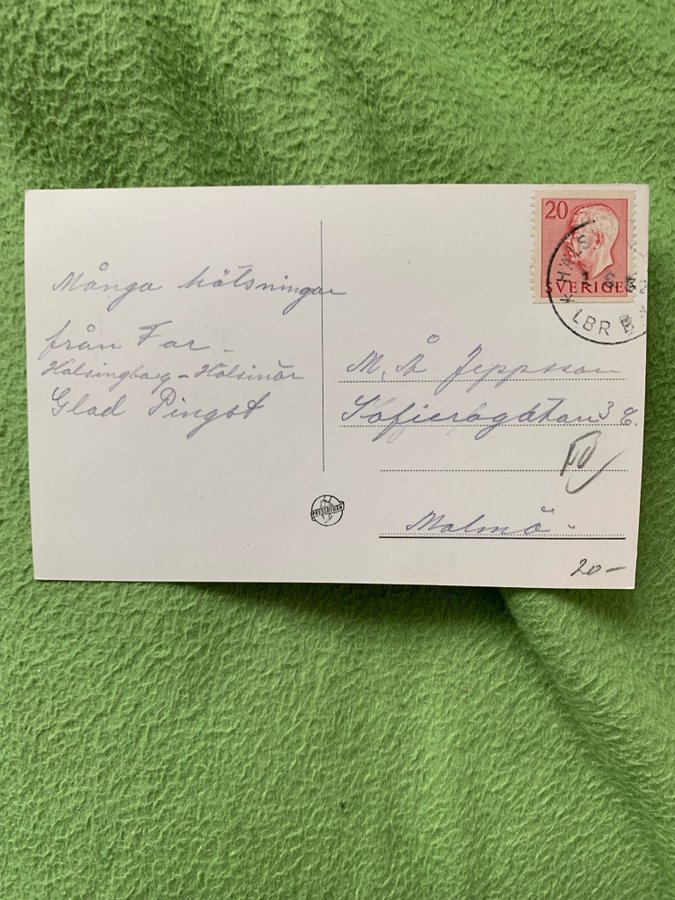 Många hälsningar
från Far –
Hälsingborg – Hälsinör
Glad Pingst
20
SVERIGE
LBR
M. A. Jeppsson
Sofieragatan 3 C.
Malmö –
PRESSBYRÅN
20 –